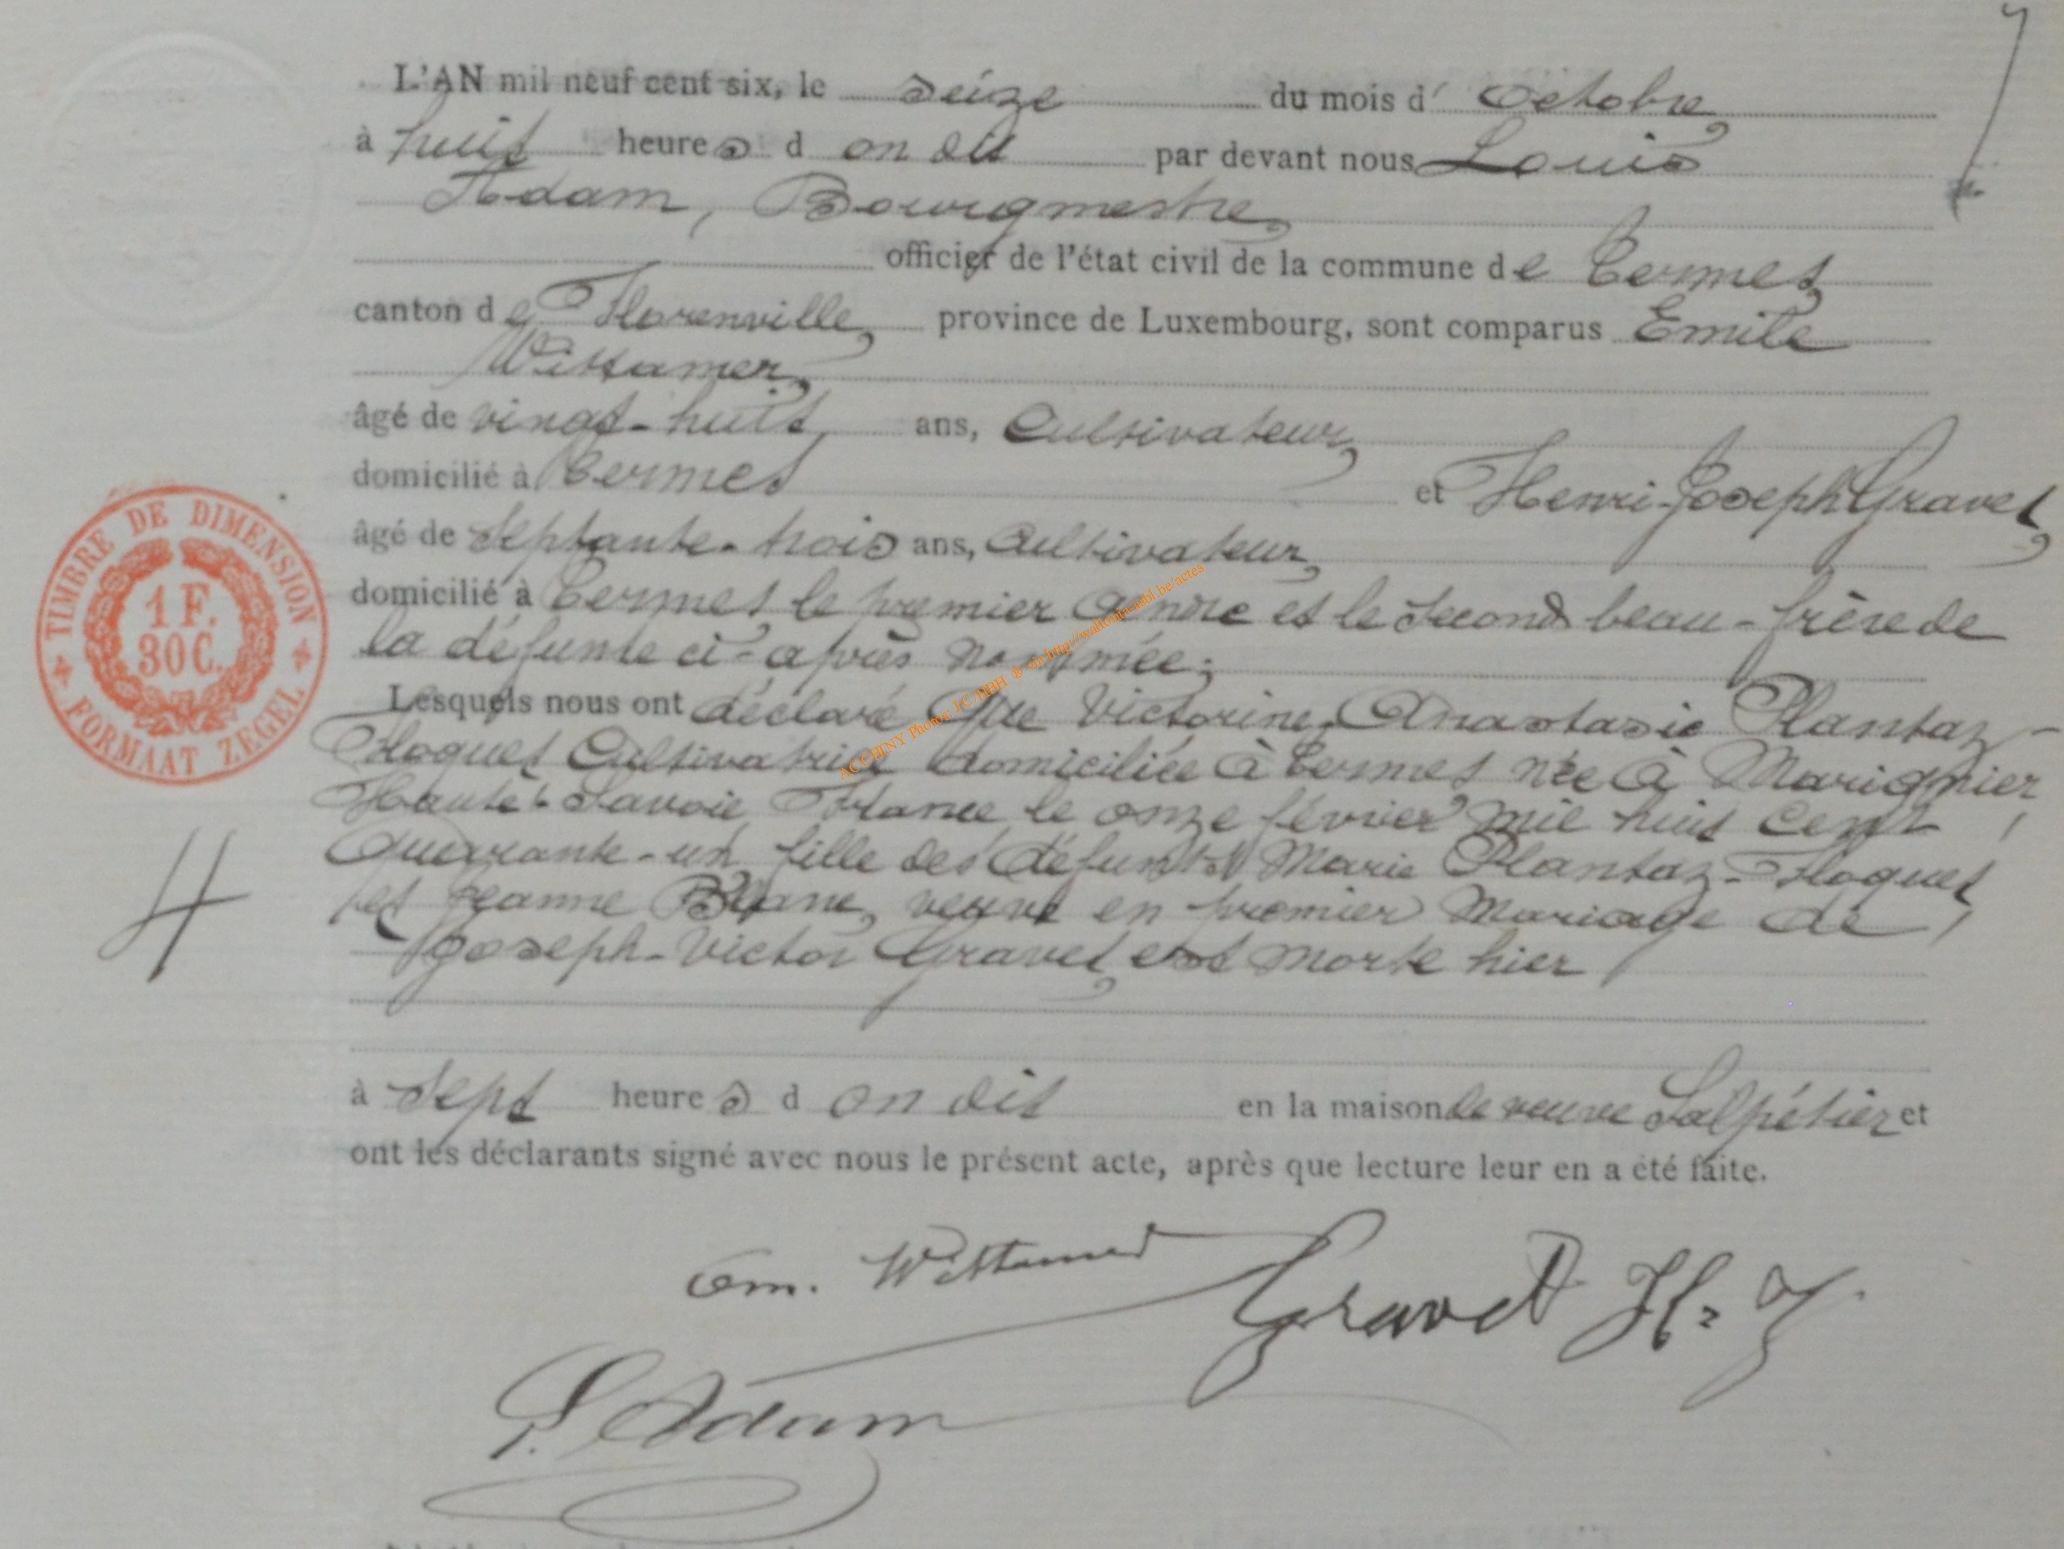 L'AN mil neuf cent six, le seize du mois d' Octobre,
à huit heures d on dit par devant nous Louis
Adam, Bourgmestre,
officier de l'état civil de la commune de Termes,
canton de Florenville, province de Luxembourg, sont comparus Emile
Wittamer,
âgé de vingt-huit ans, Cultivateur,
domicilié à Termes et Henri-Joseph Gravet,
âgé de Septante-trois ans, Cultivateur,
domicilié à Termes, le premier Gendre et le Second beau-frère de
la défunte ci-après nommée;
Lesquels nous ont déclaré Que Victorine, Anastasie Plantaz-
Floquet Cultivatrice domiciliée à Termes née à Marignier
Haute Savoie France le onze février mil huit Cent
Quarante-un fille des défunts Marie Plantaz-Floquet,
et Jeanne veuve en premier Mariage de
Joseph-Victor Gravet, est morte hier
à Sept heures d on dit en la maison de veuve Salpétier et
ont les déclarants signé avec nous le présent acte, après que lecture leur en a été faite.
Em. Wittamer
Gravet H. J.
L. Adam
TIMBRE DE DIMENSION
1 F.
30 C.
FORMAAT ZEGEL
4
ACCHINY Photos J.C HBH @ sur http://wallonia-asbl.be/actes